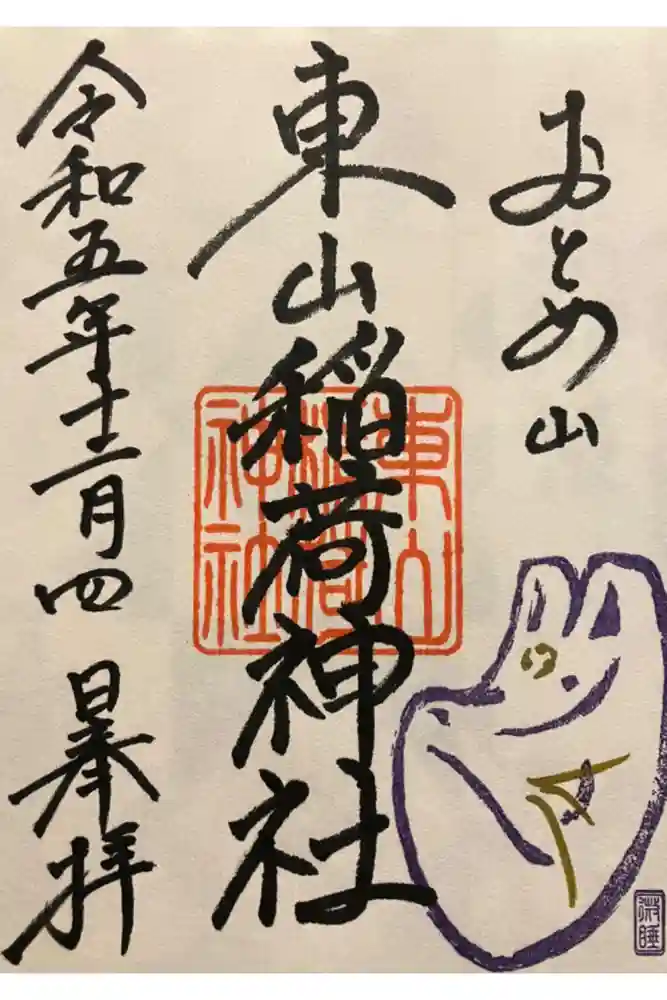 おとめ山
東山稲荷神社
東山稲荷神社
令和五年十二月四日奉拝
微睡